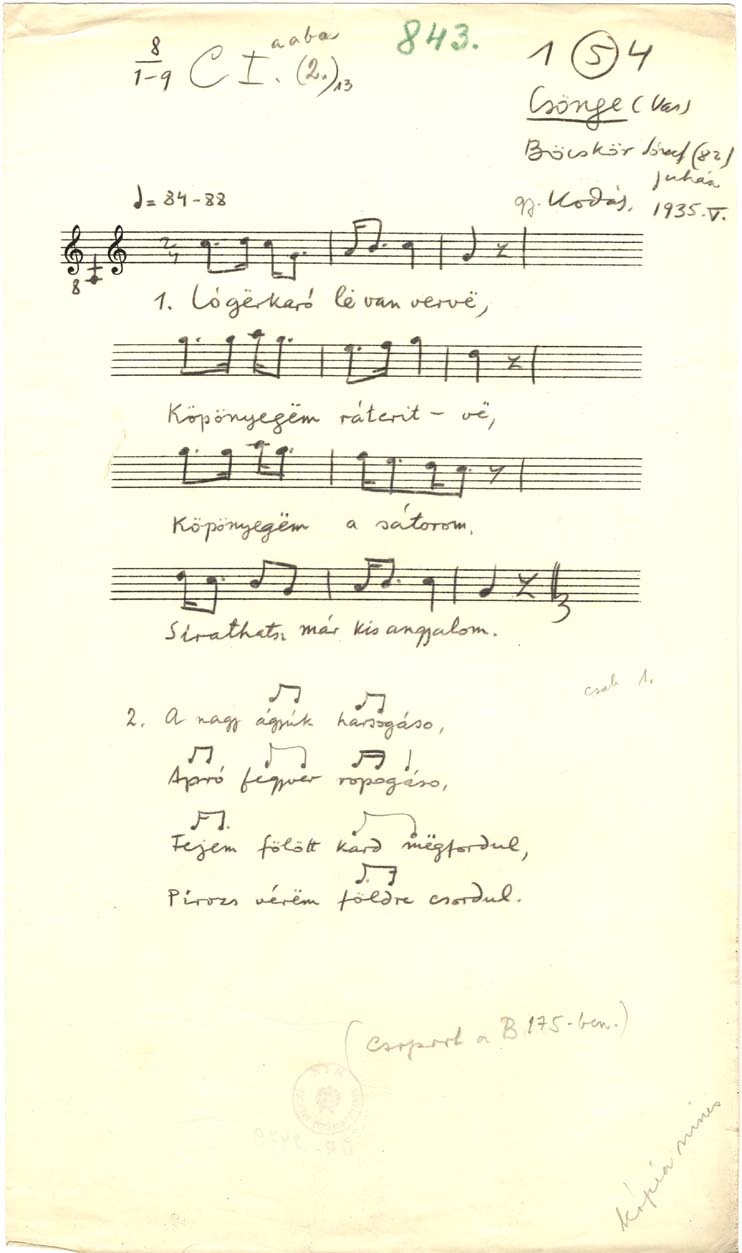 8
1-9 C I. (2.)13
a a b a
843.
1 5 4
Csönge (Vas)
Böcskör József (82)
juhász
gy. Kodás. 1935. V.
♩ = 84-88
8
2
4
1. Lógërkaró lë van vervë,
Köpönyegëm ráterit - vë,
Köpönyegëm a sátorom,
Sirathatsz már kis angyalom.
csak 1.
2. A nagy ágyúk harsogáso,
Apró fegyver ropogáso,
Fejem fölött kard mëgfordul,
Pirozs vérëm földre csordul.
(csoport a B 175-ben.)
kópia nincs